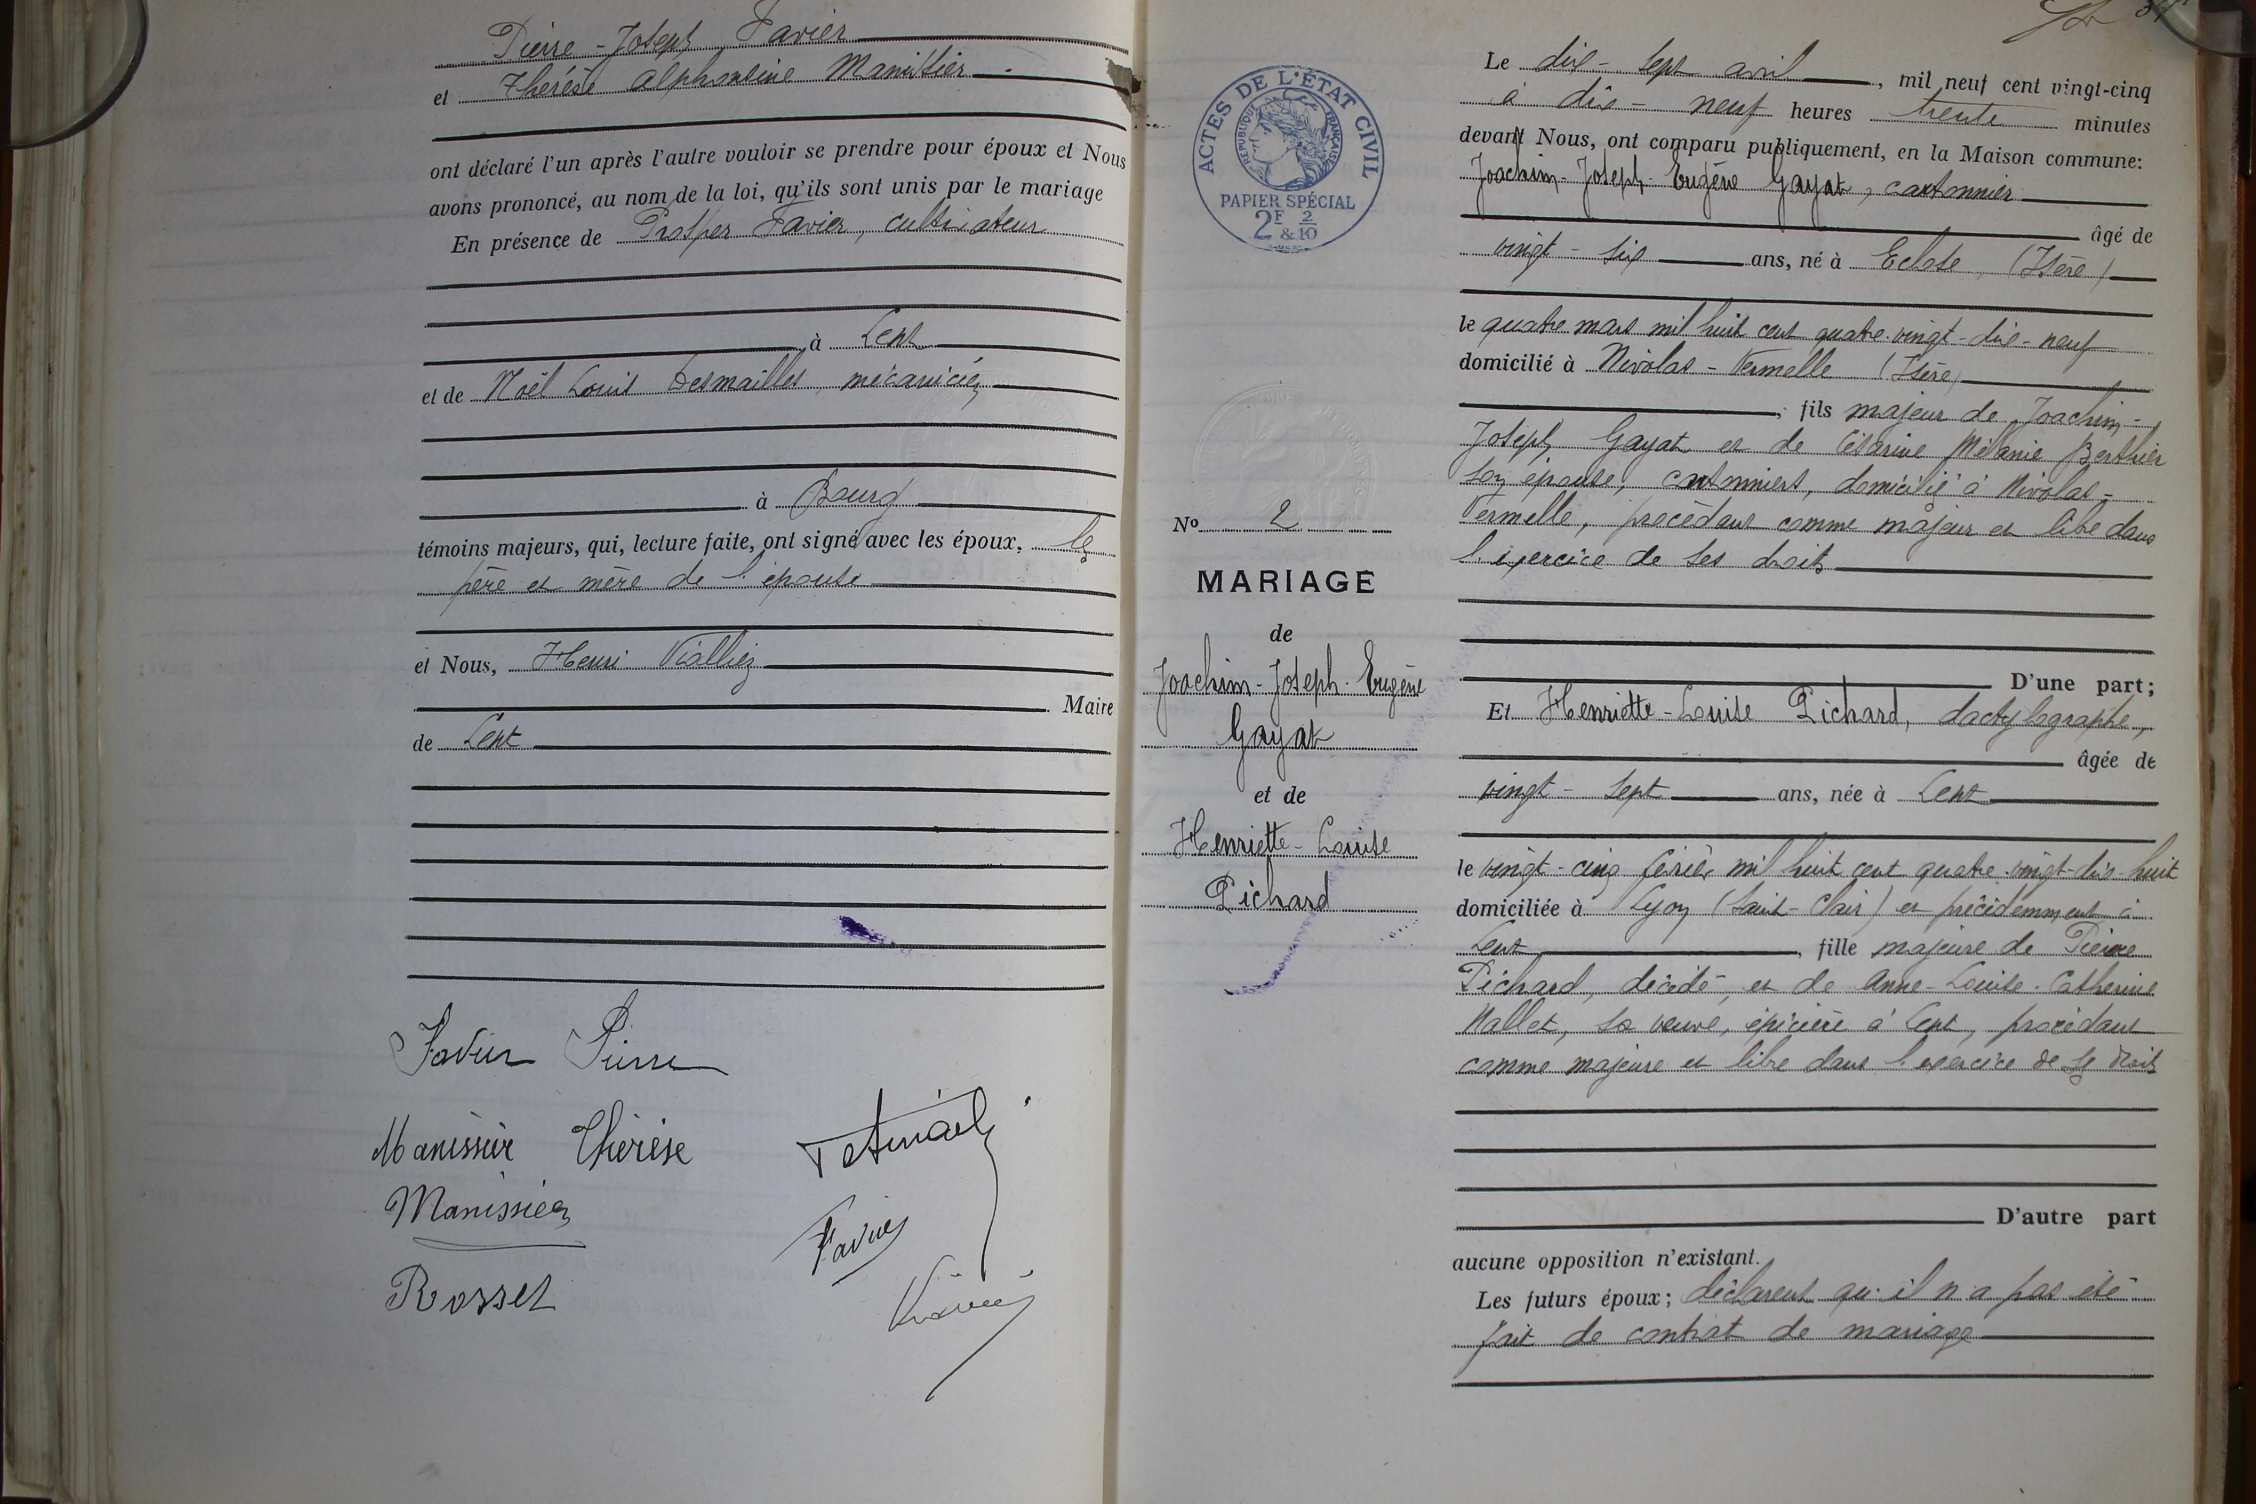 Pierre - Joseph Favier
et Thérèse Alphonsine Manissier
ont déclaré l'un après l'autre vouloir se prendre pour époux et Nous
avons prononcé, au nom de la loi, qu'ils sont unis par le mariage
En présence de Prosper Favier, cultivateur
à Lent
et de Noël Louis Desmailles, mécanicien
à Bourg
témoins majeurs, qui, lecture faite, ont signé avec les époux, les
père et mère de l'épouse
et Nous, Henri
Maire
de Lent
Favier Pierre
Manissier Thérèse
Manissier
Favier
Rosset
ACTES DE L'ÉTAT CIVIL
RÉPUBLIQUE FRANÇAISE
PAPIER SPÉCIAL
2F & 2/10
No 2
MARIAGE
de
Joachim - Joseph - Eugène
Gayat
et de
Henriette - Louise
Pichard
Le dix - sept avril, mil neuf cent vingt-cinq
à dix - neuf heures trente minutes
devant Nous, ont comparu publiquement, en la Maison commune:
Joachim - Joseph - Eugène Gayat, cantonnier
âgé de
vingt - six ans, né à Eclose, (Isère)
le quatre mars mil huit cent quatre-vingt-dix-neuf
domicilié à Nivolas - Vermelle (Isère)
, fils majeur de Joachim -
Joseph Gayat et de Césarine Mélanie Berthier
son épouse, cantonniers, domicilié à Nivolas -
Vermelle, procédant comme majeur et libre dans
l'exercice de ses droits
D'une part;
Et Henriette - Louise Pichard, dactylographe,
âgée de
vingt - sept ans, née à Lent
le vingt-cinq février mil huit cent quatre-vingt-dix-huit
domiciliée à Lyon (Saint-Clair) et précédemment à
Lent, fille majeure de Pierre
Pichard, décédé, et de Anne - Louise - Catherine
Mallet, sa veuve, épicière à Lent, procédant
comme majeure et libre dans l'exercice de ses droits
D'autre part
aucune opposition n'existant.
Les futurs époux; déclarent qu'il n'a pas été
fait de contrat de mariage